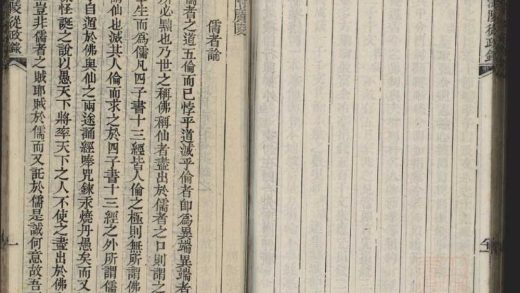 陵從政錄
儒者論
儒者之道五倫而已悖乎道滅乎倫者卽為異端異端者
所必黜也乃世之稱佛稱仙者盡出於儒者之口則謂之
生而為儒凡四子書十三經皆人倫之極則無所謂佛
謂仙也滅其人倫而求之於四子書十三經之外所謂儒
自遊於佛與仙之兩途誦經咒鍊汞燒丹愚矣而又
怪誕之說以愚天下將率天下之人不使之盡出於佛
豈非儒者之賊耶賊於儒而又託於儒是誠何意故吾
陵從政錄
一